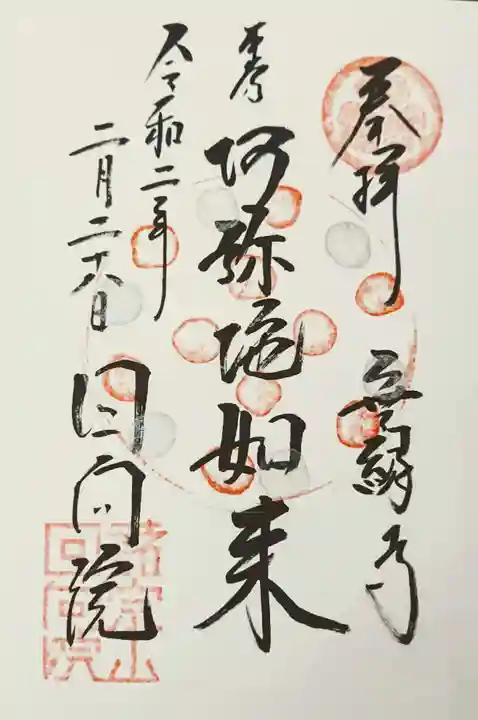 奉拝
本尊
阿弥陀如来
令和二年
二月二十六日
回向院